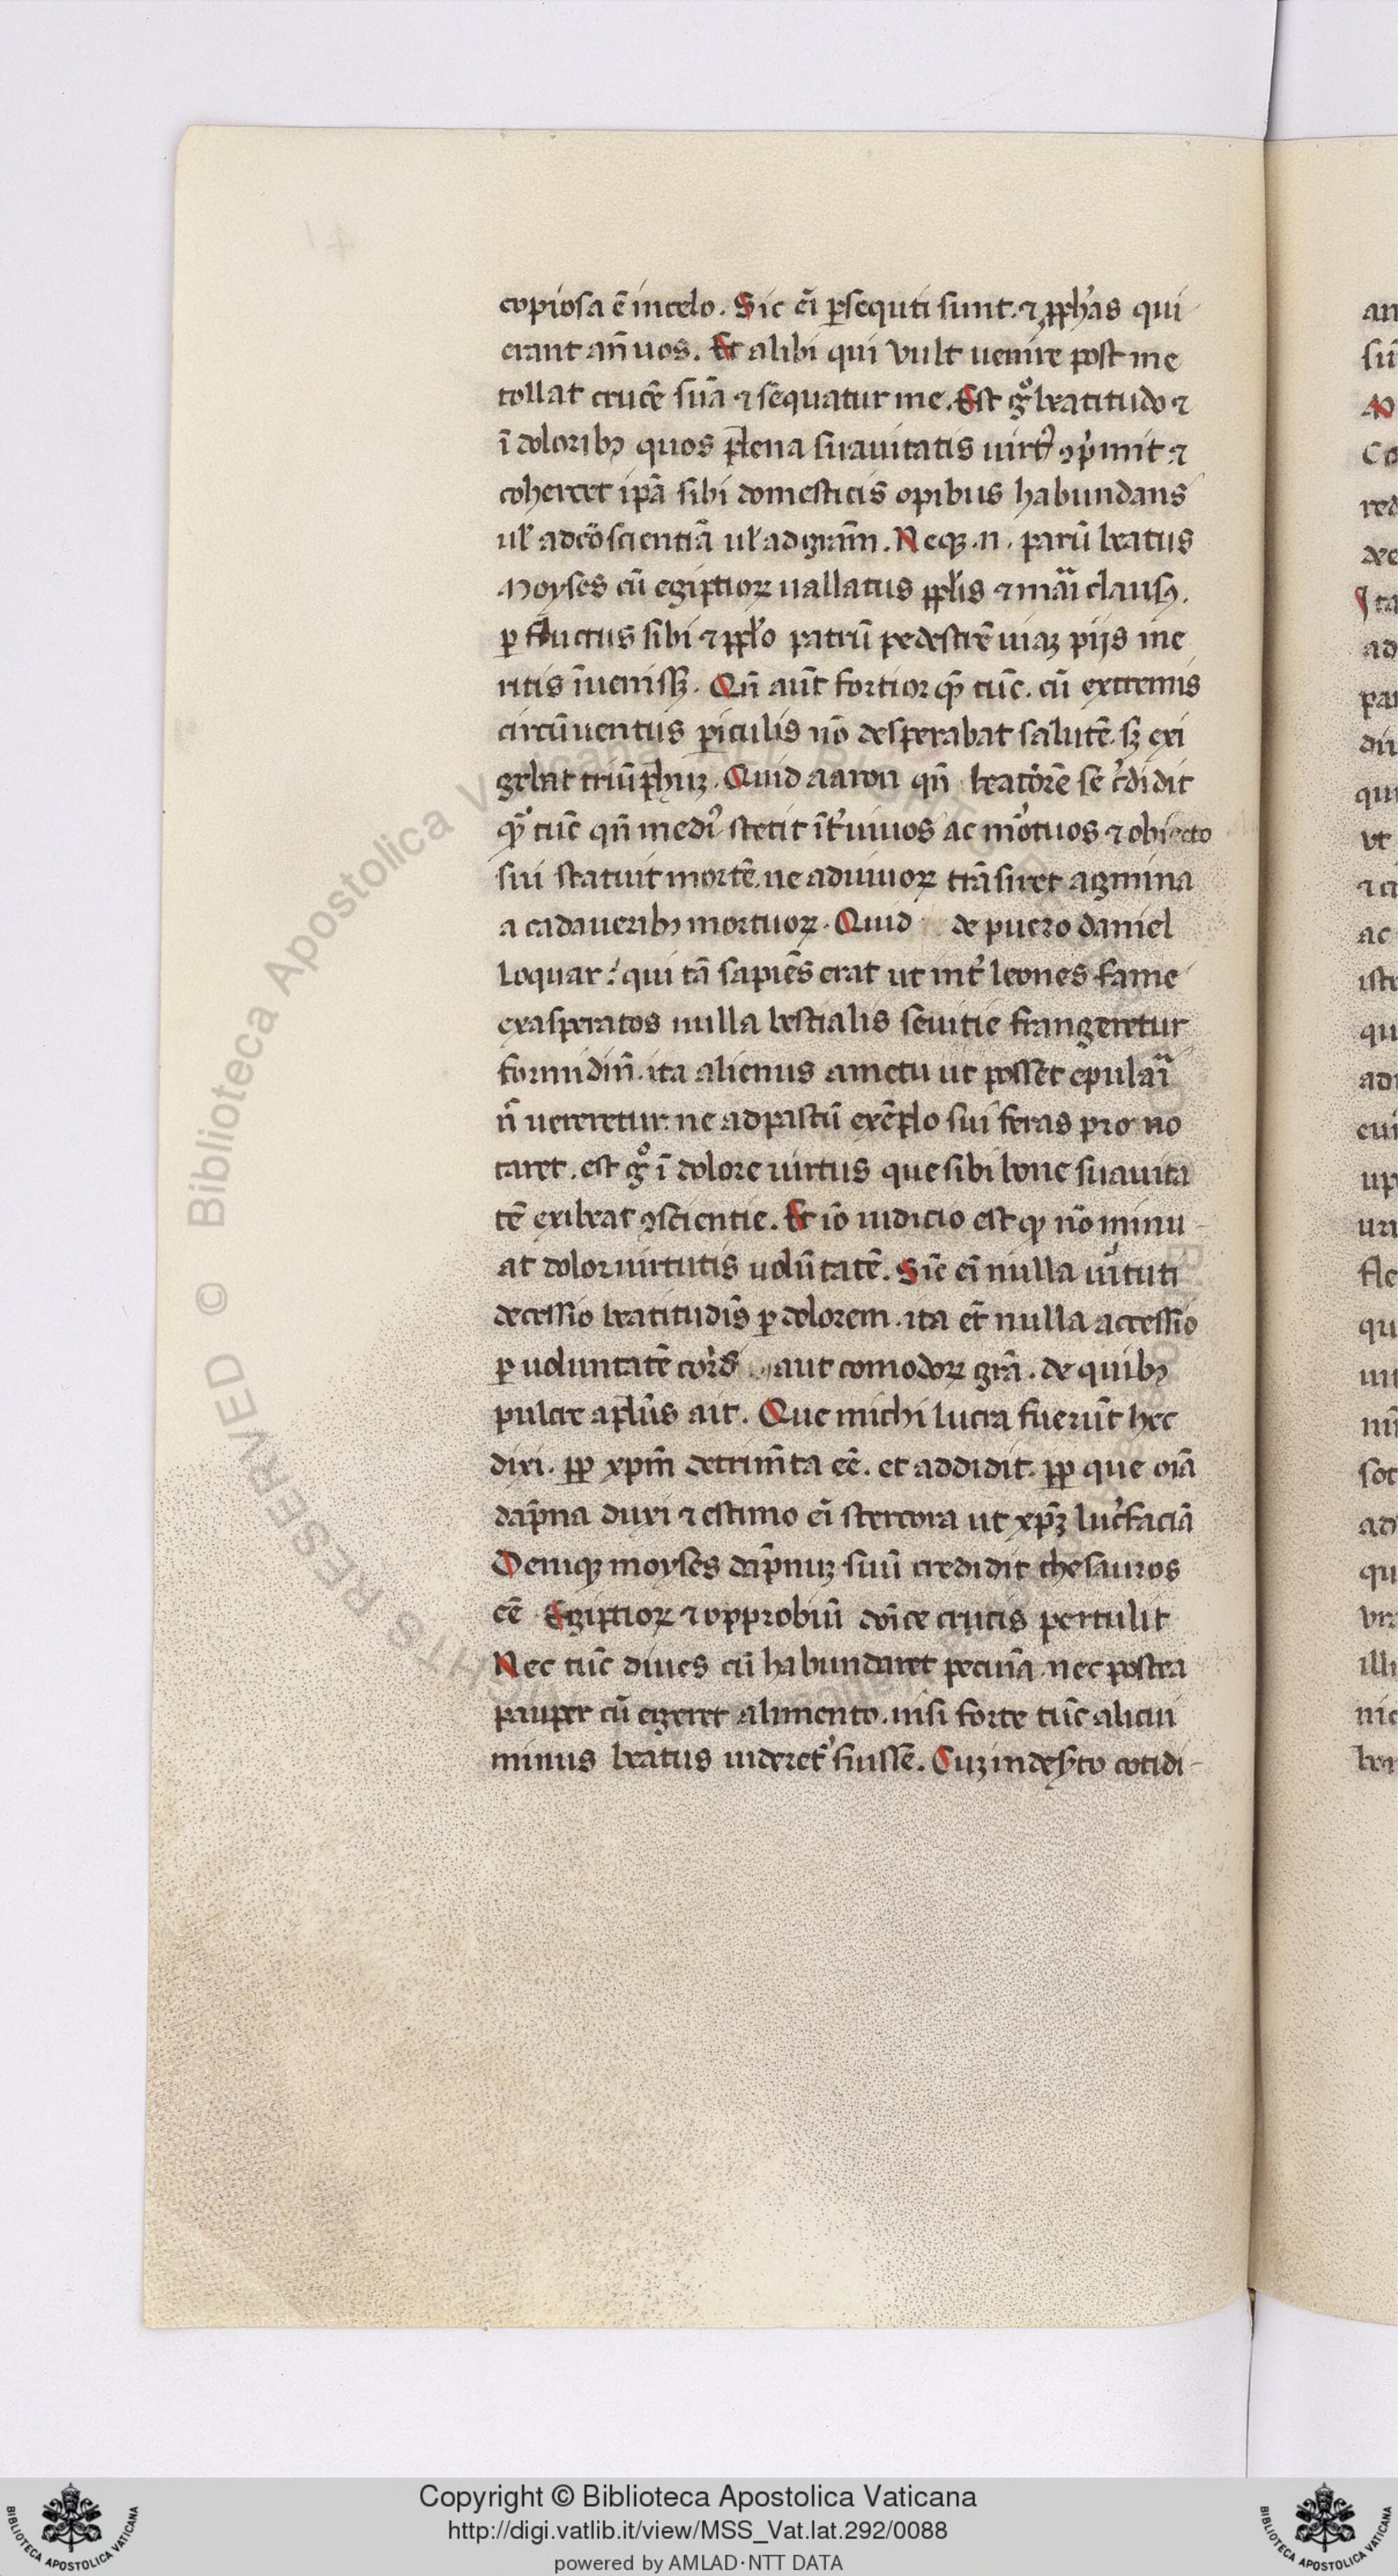 copiosa ē in celo. Sic ei̅ p̲sequti sunt. ⁊ ꝓph̓as qui
erant an̄ uos. Et alibi qui vult uenire post me
tollat crucē suā ⁊ sequatur me. Est gͦ beatitudo ⁊
ī doloribꝫ quos plena suauitatis uirtꝰ ꝯpͥmit ⁊
cohercet ip̄a sibi domesticis opibus habundans
ul̓ ad cōscientiā ul̓ ad gr̄am. Neqꝫ .n. parū beatus
Moyses cū egiptioꝝ uallatus pp̄lis ⁊ mari clausꝰ.
ꝑ fluctus sibi ⁊ pp̄lo patrū pedestrē uiaꝫ pijs me
ritis īuenissꝫ. Qn̄ aūt fortior qͣꝫ tūc. cū extremis
circūuentus ꝑiculis nō desperabat salutē sꝫ exi
gebat triūphuꝫ. Quid aaron qn̄ beatiorē se cͬdidit
qͣꝫ tūc qn̄ mediꝰ stetit īt̓ uiuos ac mortuos ⁊ obiecto
sui statuit mortē ne ad uiuoꝝ trāsiret agmina
a cadaueribꝫ mortuoꝝ. Quid de puero daniel
loquar: qui tā sapiēs erat ut int̓ leones fame
exasperatos nulla bestialis seuitie frangeretur
formidin̄. ita alienus a metu ut posset epulari
n̄ uereretur ne ad pastū exēplo sui feras pro uo
caret. est gͦ ī dolore uirtus que sibi bone suauita
tē exibeat ꝯscientie. Et iō iudicio est qꝫ nō minu-
at dolor uirtutis uolūtatē. Sic ei̅ nulla uirtuti
decessio beatitudīs ꝑ dolorem. ita et̄ nulla accessio
ꝑ uoluntatē corꝑis aut comodoꝝ grā. de quibꝫ
pulcre apl̄us ait. Que michi lucra fuerūt hec
dixi. ꝓp xp̄m detrimēta eē. et addidit. ꝓp que oīa
dāpna duxi ⁊ estimo ei̅ stercora ut xp̄ꝫ luc̓faciā
Deniqꝫ moyses dāpnuꝫ suū credidit thesauros
eē Egiptioꝝ ⁊ opprobiū dōice crucis pertulit
Nec tūc diues cū habundaret pecunīa nec postea
pauper cū egeret alimento. nisi forte tūc alicui
minus beatus uideret̓ fuisse. Cuꝫ in des̓to cotidi-